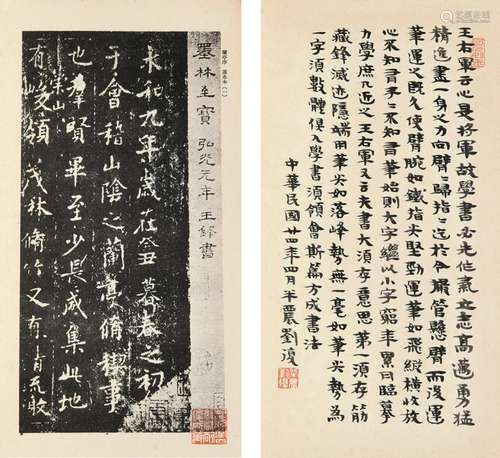 王右軍云心是將軍故學書必先作氣立志高邁勇猛
精進盡一身之力向臂歸指撮管懸臂而後運
筆運之既久使臂腕如鐵指尖堅勁運筆如飛縱橫收放
心不知有手手不知有筆始則大字繼以小字窮年累月臨摹
力學庶几近之王右軍又云夫書大須存意思第一須存筋
藏鋒滅迹隱端用筆尖如落峰勢無一毫如筆尖勢為
一字須數體俱入學書須領會斯篇方成書法
中華民國廿四年四月半農劉復
墨林至寶 弘光元年 王鐸書
永和九年歲在癸丑暮春之初
于會稽山陰之蘭亭脩稧事
也羣賢畢至少長咸集此地
崇山
有峻領茂林脩竹又有清流激